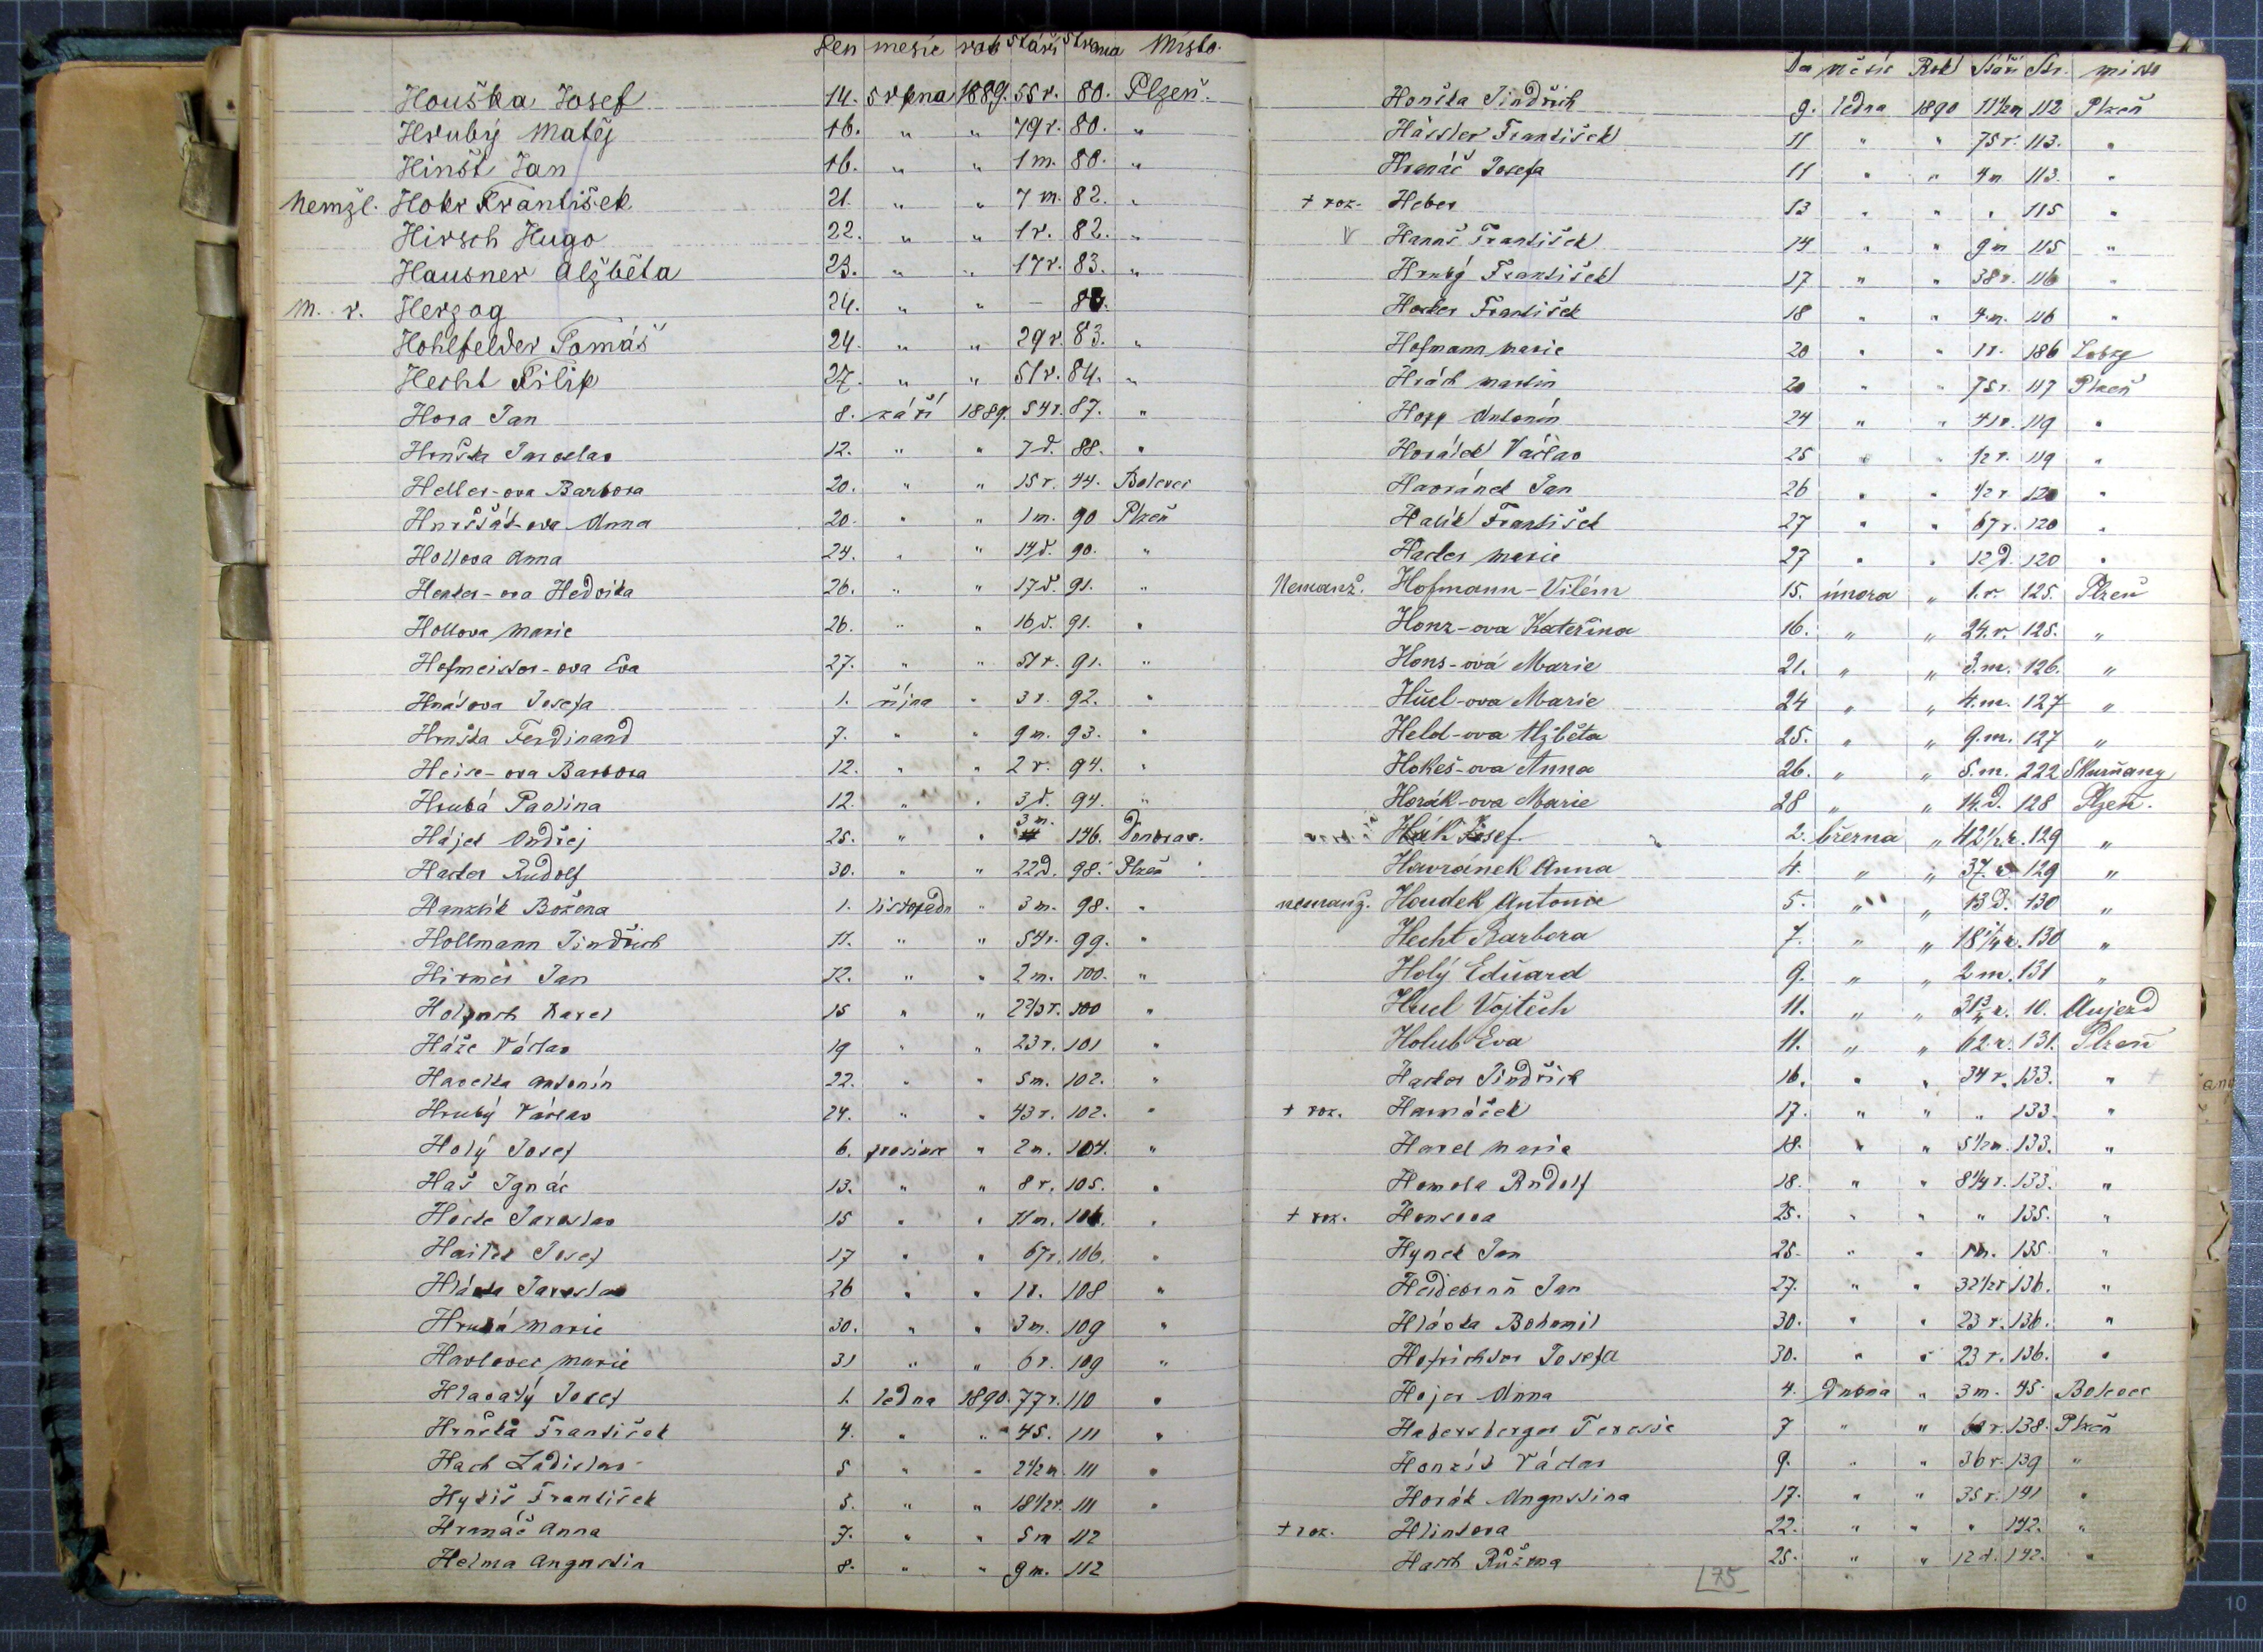 Den mesíc rok Stáří Strana Místo.
Houška Josef 14. srpna 1889. 55 r. 80. Plzeň.
Hruby Matěj 16. " " 79 r. 80. "
Hinšt Jan 16. " " 1 m. 80. "
Nemžl. Hokr František 21. " " 7 m. 82. "
Hirsch Hugo 22. " " 1 r. 82. "
Hausner Alžběta 23. " " 17 r. 83. "
M. r. Herzog 24. " " —
Hohlfelder Tomáš 24. " " 29 r. 83. "
Hecht Filip 27. " " 51 r. 84. "
Hora Jan 8. září 1889. 54 r. 87. "
Hruška Jaroslav 12. " " 7 d. 88. "
Heller-ova Barbora 20. " " 15 r. 44. Bolevec
Anna 20. " " 1 m. 90 Plzeň
Hollova Anna 24. " " 14 d. 90. "
Hedvika 26. " " 17 d. 91. "
Hollova Marie 26. " " 16 d. 91. "
Hofmeister-ova Eva 27. " " 51 r. 91. "
Josefa 1. října " 3 r. 92. "
Hruška Ferdinand 7. " " 9 m. 93. "
Heise-ova Barbora 12. " " 2 r. 94. "
Hrubá Pavlina 12. " " 3 d. 94. "
Hájek Ondřej 25. " " 3 m. 146. Doubrav.
Hacker Rudolf 30. " " 22 d. 98. Plzeň
Hanzlik Božena 1. listopadu " 3 m. 98. "
Hollmann Jindřich 11. " " 54 r. 99. "
Hirmer Jan 12. " " 2 m. 100. "
Karel 15 " " 2 2/3 r. 100 "
Háže Václav 19 " " 23 r. 101 "
Havelka Antonín 22. " " 5 m. 102. "
Hrubý Václav 24. " " 43 r. 102. "
Holý Josef 6. prosince " 2 m. 104. "
Haš Ignác 13. " " 8 r. 105. "
Jaroslav 15 " " 11 m. 106. "
Josef 17 " " 67 r. 106. "
Jaroslav 26 " " 1 r. 108 "
Hrubá Marie 30. " " 3 m. 109 "
Havlovec Marie 31 " " 6 r. 109 "
Hlavatý Josef 1. ledna 1890. 77 r. 110 "
František 4. " " 45. 111 "
Hach Ladislav 5 " " 2 1/2 m. 111 "
František 5. " " 18 1/2 r. 111 "
Hrmáč Anna 7. " " 5 m 112
Helma Augustin 8. " " 9 m. 112
Da měsíc Rok Stáří Str. místo
Jindřich 9. ledna 1890 11 1/2 m 112 Plzeň
Hässler František 11 " " 75 r. 113. "
Hrmáč Josefa 11 " " 4 m 113. "
+ roz. Heber 13 " " " 115 "
V Hanuš František 14 " " 9 m 115 "
Hrubý František 17 " " 38 r. 116 "
František 18 " " 4 m. 116 "
Hofmann Marie 20 " " 1 r. 186 Lobzy
Hrách Martin 20 " " 75 r. 117 Plzeň
Hopp Antonín 24 " " 41 r. 119 "
Horáček Václav 25 " " 119 "
Havránek Jan 26 " " 1/2 r. 120 "
Halík František 27 " " 67 r. 120 "
Hacker Marie 27 " " 12 d. 120 "
Nemanž. Hofmann-Vilém 15. února " 1. r. 125. Plzeň
Honz-ova Kateřina 16. " " 24. r. 125. "
Hons-ová Marie 21. " " 3. m. 126. "
Hűel-ova Marie 24 " " 4. m. 127 "
Held-ova Alžběta 25. " " 9. m. 127 "
Hokeš-ova Anna 26. " " 5. m. 222 Skurňany
Horák-ova Marie 28 " " 14. d. 128 Plzeň.
Josef 2. března " 42 1/2 r. 129 "
Havránek Anna 4. " " 37. r 129 "
nemanž. Houdek Antonie 5. " " 13 d. 130 "
Hecht Barbora 7. " " 18 1/4 r. 130 "
Holý Eduard 9. " " 2 m. 131 "
Huel Vojtěch 11. " " 10. Aujezd
Holub Eva 11. " " 62. r. 131. Plzeň
Hacker Jindřich 16. " " 34 r. 133. "
+ roz. Harnáček 17. " " " 133 "
Havel Marie 18. " " 5 1/2 m. 133. "
Homola Rudolf 18. " " 8 1/4 r. 133. "
+ roz. Honsova 25. " " " 135. "
Hynek Jan 25. " " 1 m. 135. "
Jan 27. " " 32 1/2 r 136. "
Hlávka Bohumil 30. " " 23 r. 136. "
Hofrichter Josefa 30. " " 23 r. 136. "
Hojer Anna 4. dubna " 3 m. 45. Bolevec
Habersberger Teresie 7 " " 138. Plzeň
Honzík Václav 9. " " 36 r. 139 "
Horák Augustina 17. " " 35 r. 141 "
+ roz. Hlintova 22. " " " 142. "
Růžena 25. " " 12 d. 142. "
75
10